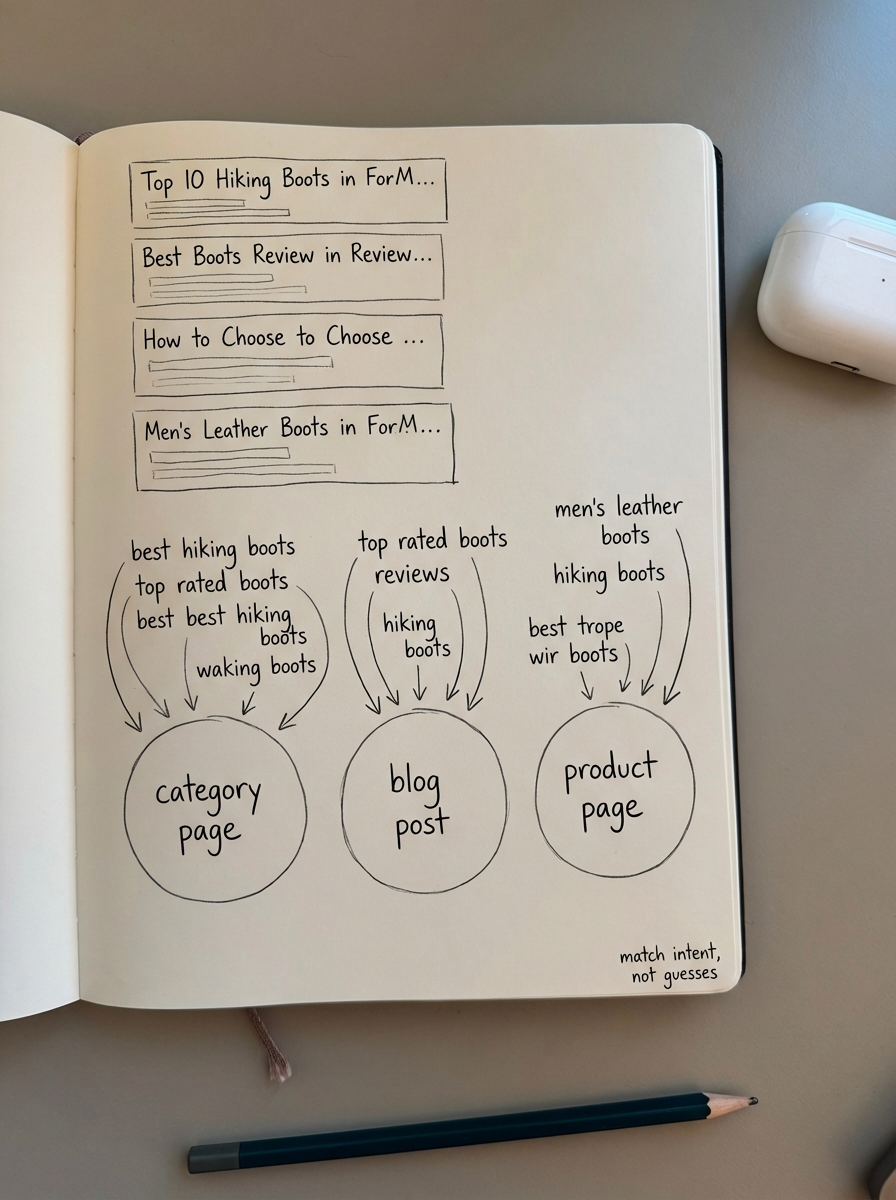 Top 10 Hiking Boots in ForM...
Best Boots Review in Review...
How to Choose to Choose ...
Men's Leather Boots in ForM...
best hiking boots
top rated boots
best best hiking
boots
waking boots
top rated boots
reviews
hiking
boots
men's leather
boots
hiking boots
best trope
wir boots
category
page
blog
post
product
page
match intent,
not guesses